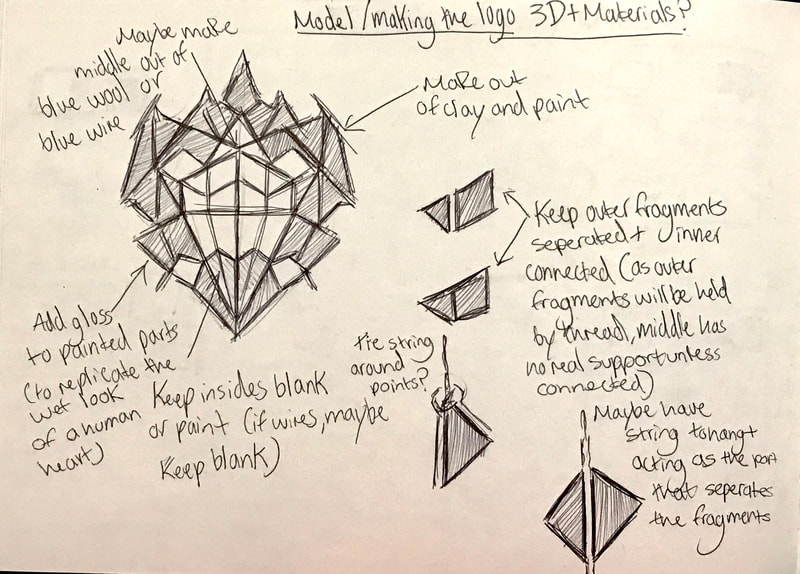 Model/making the logo 3D+Materials?
Maybe make
middle out of
blue wool or
blue wire
Make out
of clay and paint
Keep outer fragments
seperated + inner
connected (as outer
fragments will be held
by thread, middle has
no real support unless
connected)
Add gloss
to painted parts
(to replicate the
wet look
of a human
heart)
Keep insides blank
or paint (if wires, maybe
keep blank)
tie string
around
points?
Maybe have
string to hang +
acting as the part
that seperates
the fragments